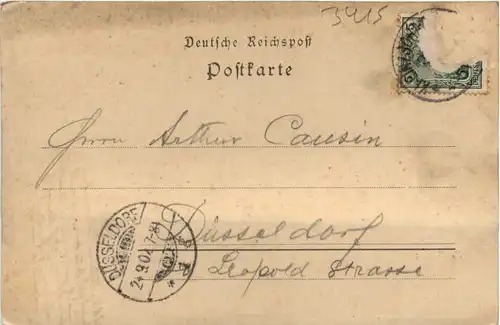 3415
Deutsche Reichspost
Postkarte
Herrn Arthur Causin
Düsseldorf
Leopold Strasse
DÜSSELDORF
24.9.02.7-8